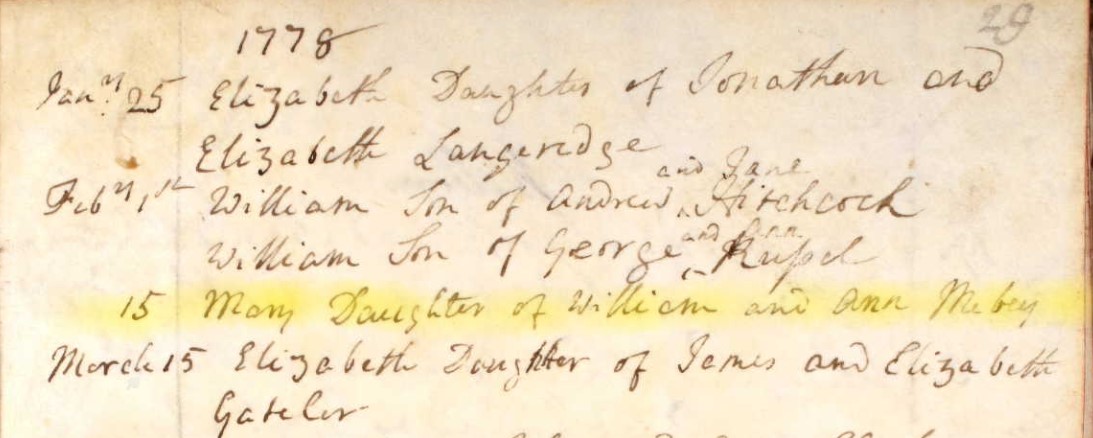 29
1778
Jan.y 25 Elizabeth Daughter of Jonathan and
Elizabeth Langeridge
Feb.y 1st William Son of Andrew and Jane Hitchcock
William Son of George and Ann Rufsel
15 Mary Daughter of William and Ann Mebey
March 15 Elizabeth Daughter of James and Elizabeth
Gateler